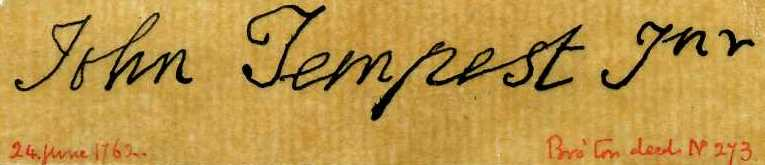 John Tempest Jnr
24. June 1762.
Bro'ton deeds Nº 273